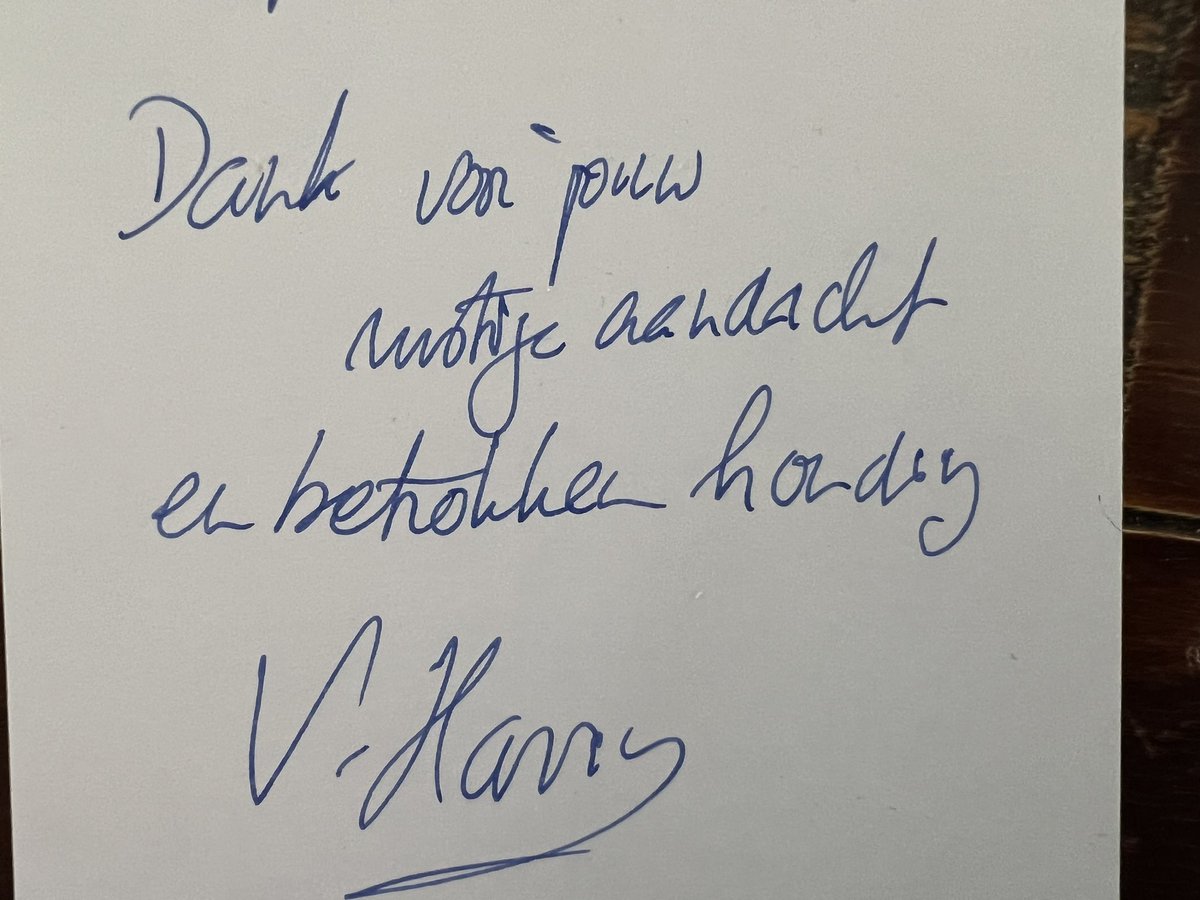 Dank voor jouw
rustige aandacht
en betrokken houding
V. Harry